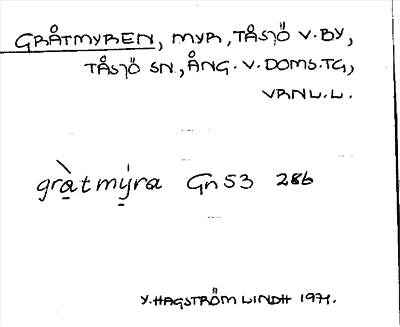 GRÅTMYREN, MYR, TÅSJÖ V. BY,
TÅSJÖ SN., ÅNG. V. DOMS. TG,
VRNL.L.
grà̱tmý̱ra Gn 53 286
Y. HAGSTRÖM LINDH 1971.